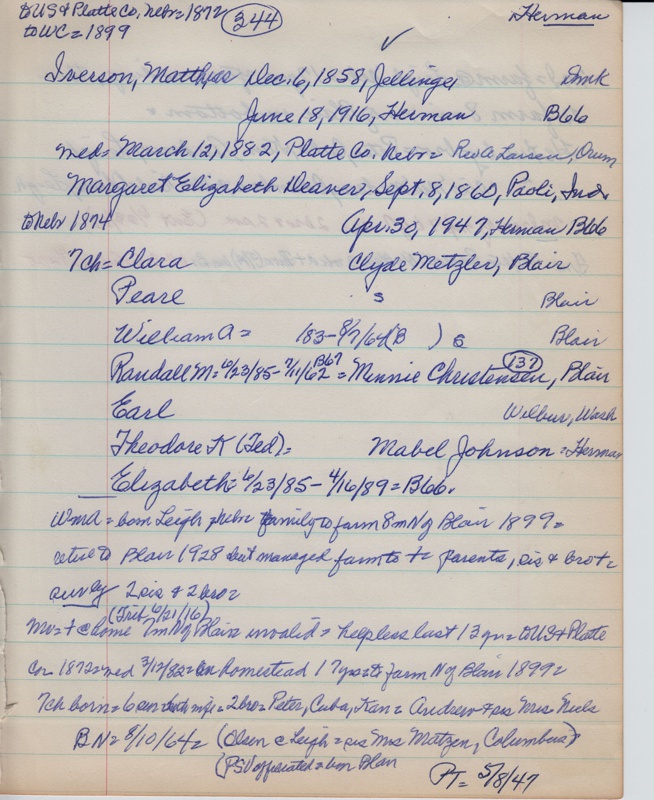 to US & Platte Co, Nebr = 1872 (344) Herman
to WC = 1899
Iverson, Matthias Dec. 6, 1858, Jellinge, Dmk
June 18, 1916, Herman B66
med = March 12, 1882, Platte Co. Nebr = Rev A Larsen, Orum
Margaret Elizabeth Deaver, Sept. 8, 1860, Paoli, Ind
to Nebr 1874 Apr. 30, 1947, Herman B66
7 ch = Clara Clyde Metzler, Blair
Pearl s Blair
William A = 183-8/7/64 (B ) s Blair
Randall M = 6/23/85 - 7/11/62 B67 = Minnie Christensen, (137) Blair
Earl Wilbur, Wash
Theodore K (Ted) = Mabel Johnson = Herman
Elizabeth = 6/23/85 - 4/16/89 = B66.
Wm A = born Leigh Nebr family to farm 8 m N of Blair 1899 =
to Blair 1928 but managed farm to + parents, sis & bro +
surv by 2 sis & 2 bro =
(Trib 6/21/16)
+ @ home 7 m N of Blair invalid = helpless last 13 yr = to US & Platte
Co. 1872 = med 3/12/82 = on homestead 17 yrs to farm N of Blair 1899 =
7 ch born = 6 = 2 bro = Peter, Cuba, Kan = Andrew & sis Mrs Niels
BN = 8/10/64 = (Olsen @ Leigh = sis Mrs Matzen, Columbus)
(PSV officiated = Blair
PT = 5/8/47